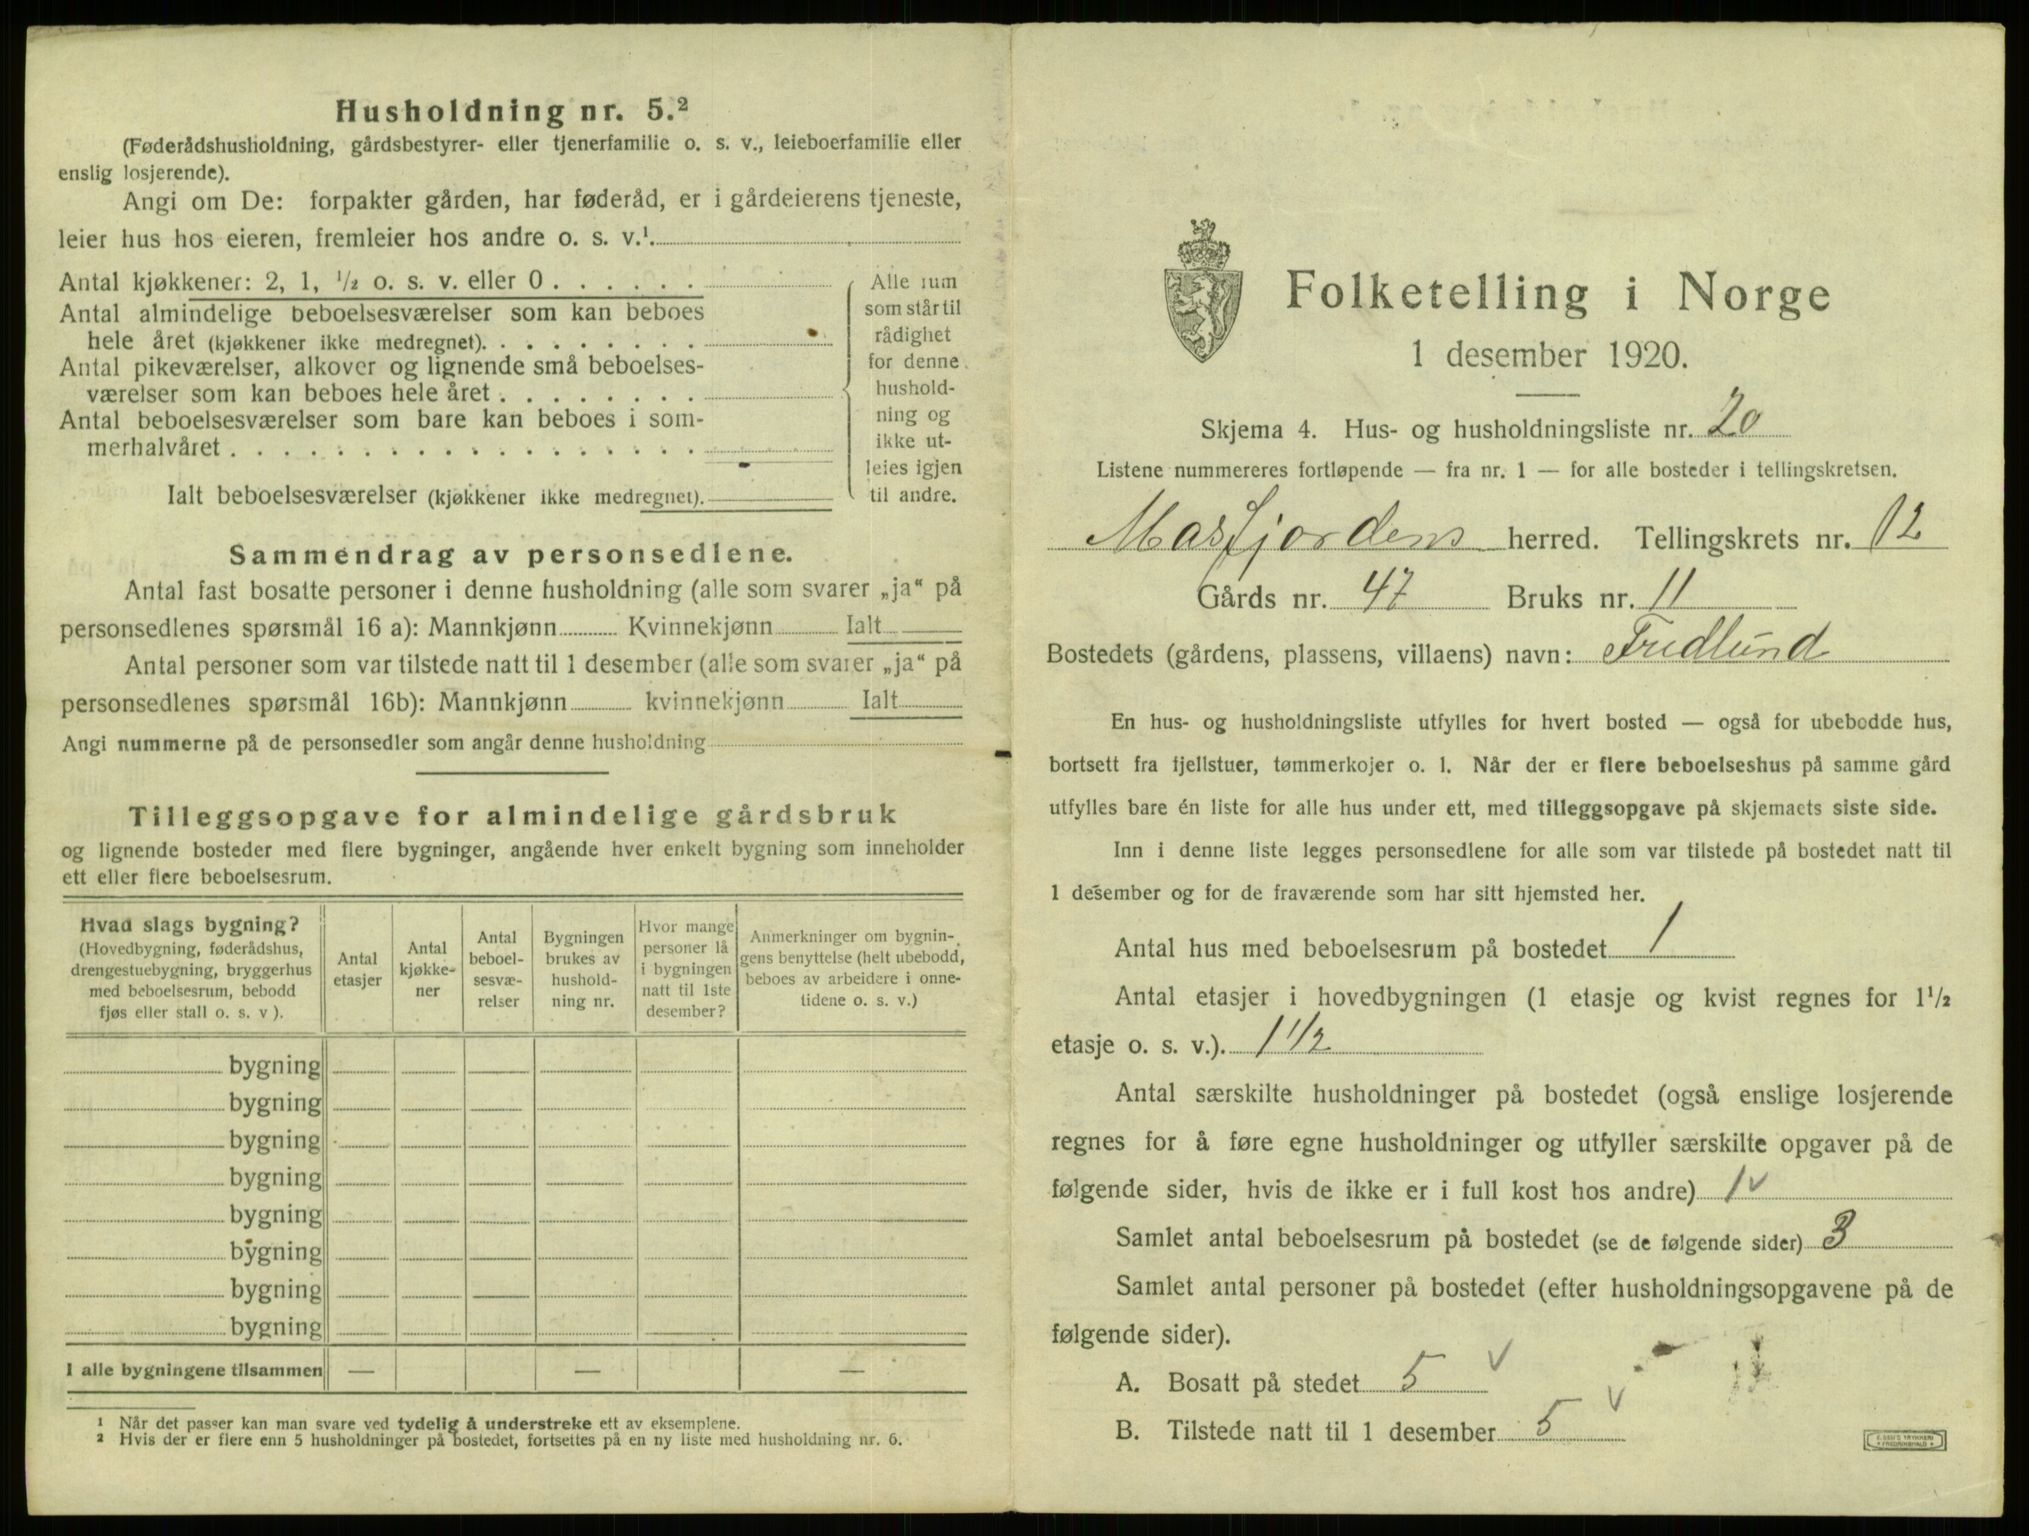 Husholdning nr. 5.²
(Føderådshusholdning, gårdsbestyrer- eller tjenerfamilie o. s. v., leieboerfamilie eller
enslig losjerende).
Angi om De: forpakter gården, har føderåd, er i gårdeierens tjeneste,
leier hus hos eieren, fremleier hos andre o. s. v.¹
Antal kjøkkener: 2, 1, ½ o. s. v. eller 0
Antal almindelige beboelsesværelser som kan beboes
hele året (kjøkkener ikke medregnet).
Antal pikeværelser, alkover og lignende små beboelses-
værelser som kan beboes hele året
Antal beboelsesværelser som bare kan beboes i som-
merhalvåret
Ialt beboelsesværelser (kjøkkener ikke medregnet).
Alle rum
som står til
rådighet
for denne
hushold-
ning og
ikke ut-
leies igjen
til andre.
Sammendrag av personsedlene.
Antal fast bosatte personer i denne husholdning (alle som svarer „ja“ på
personsedlenes spørsmål 16 a): Mannkjønn Kvinnekjønn Ialt
Antal personer som var tilstede natt til 1 desember (alle som svarer „ja“ på
personsedlenes spørsmål 16b): Mannkjønn kvinnekjønn Ialt
Angi nummerne på de personsedler som angår denne husholdning
Tilleggsopgave for almindelige gårdsbruk
og lignende bosteder med flere bygninger, angående hver enkelt bygning som inneholder
ett eller flere beboelsesrum.
Hvad slags bygning?
(Hovedbygning, føderådshus,
drengestuebygning, bryggerhus
med beboelsesrum, bebodd
fjøs eller stall o. s. v ).
Antal
etasjer
Antal
kjøkke-
ner
Antal
beboel-
sesvæ-
relser
Bygningen
brukes av
hushold-
ning nr.
Hvor mange
personer lå
i bygningen
natt til 1ste
desember?
Anmerkninger om bygnin-
gens benyttelse (helt ubebodd,
beboes av arbeidere i onne-
tidene o. s. v.)
bygning
bygning
bygning
bygning
bygning
bygning
bygning
bygning
I alle bygningene tilsammen — — —
¹ Når det passer kan man svare ved tydelig å understreke ett av eksemplene.
² Hvis der er flere enn 5 husholdninger på bostedet, fortsettes på en ny liste med husholdning nr. 6.
Folketelling i Norge
1 desember 1920.
Skjema 4. Hus- og husholdningsliste nr. 20
Listene nummereres fortløpende — fra nr. 1 — for alle bosteder i tellingskretsen.
Masfjordens herred. Tellingskrets nr. 12
Gårds nr. 47 Bruks nr. 11
Bostedets (gårdens, plassens, villaens) navn: Fredlund
En hus- og husholdningsliste utfylles for hvert bosted — også for ubebodde hus,
bortsett fra fjellstuer, tømmerkojer o. l. Når der er flere beboelseshus på samme gård
utfylles bare én liste for alle hus under ett, med tilleggsopgave på skjemaets siste side.
Inn i denne liste legges personsedlene for alle som var tilstede på bostedet natt til
1 desember og for de fraværende som har sitt hjemsted her.
Antal hus med beboelsesrum på bostedet 1
Antal etasjer i hovedbygningen (1 etasje og kvist regnes for 1½
etasje o. s. v.). 1 1/2
Antal særskilte husholdninger på bostedet (også enslige losjerende
regnes for å føre egne husholdninger og utfyller særskilte opgaver på de
følgende sider, hvis de ikke er i full kost hos andre) 1 v
Samlet antal beboelsesrum på bostedet (se de følgende sider) 3
Samlet antal personer på bostedet (efter husholdningsopgavene på de
følgende sider).
A. Bosatt på stedet 5 v
B. Tilstede natt til 1 desember 5 v